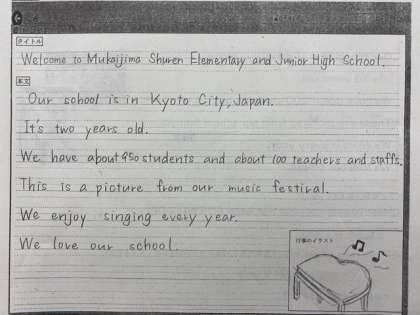 タイトル
Welcome to Mukaijima Shuren Elementary and Junior High School.
本文
Our school is in Kyoto City, Japan.
It's two years old.
We have about 950 students and about 100 teachers and staffs.
This is a picture from our music festival.
We enjoy singing every year.
We love our school.
行事のイラスト